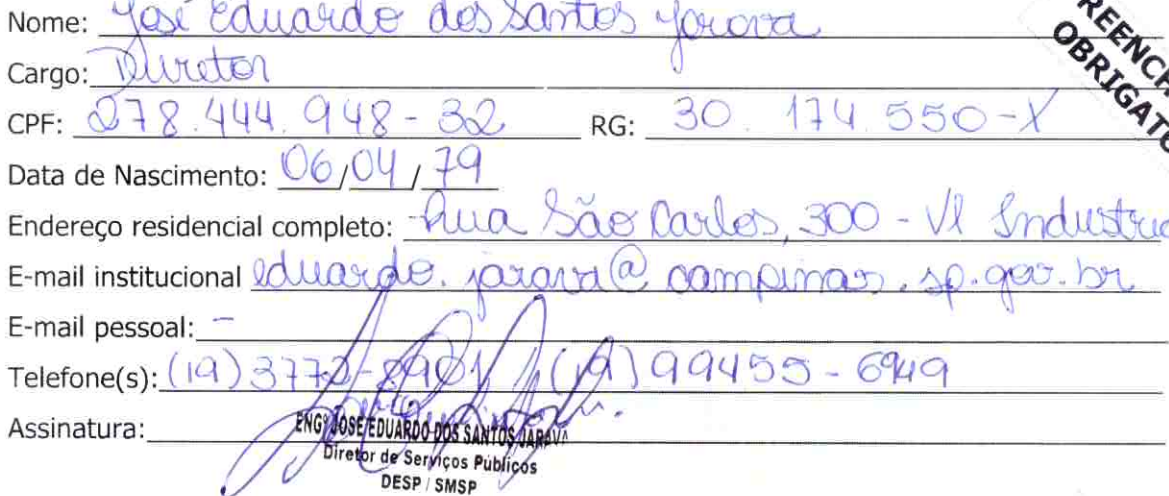 Nome: José Eduardo dos Santos Jarava
Cargo: Diretor
CPF: 278.444.948-32 RG: 30.174.550-X
Data de Nascimento: 06/04/79
Endereço residencial completo: Rua São Carlos, 300 - Vl Industria
E-mail institucional eduardo.jarava@campinas.sp.gov.br
E-mail pessoal: -
Telefone(s): (19) 3772- / (19) 99455-6949
Assinatura:
ENGº JOSE EDUARDO DOS SANTOS JARAVA
Diretor de Serviços Públicos
DESP / SMSP
REENCH
OBRIGATÓ